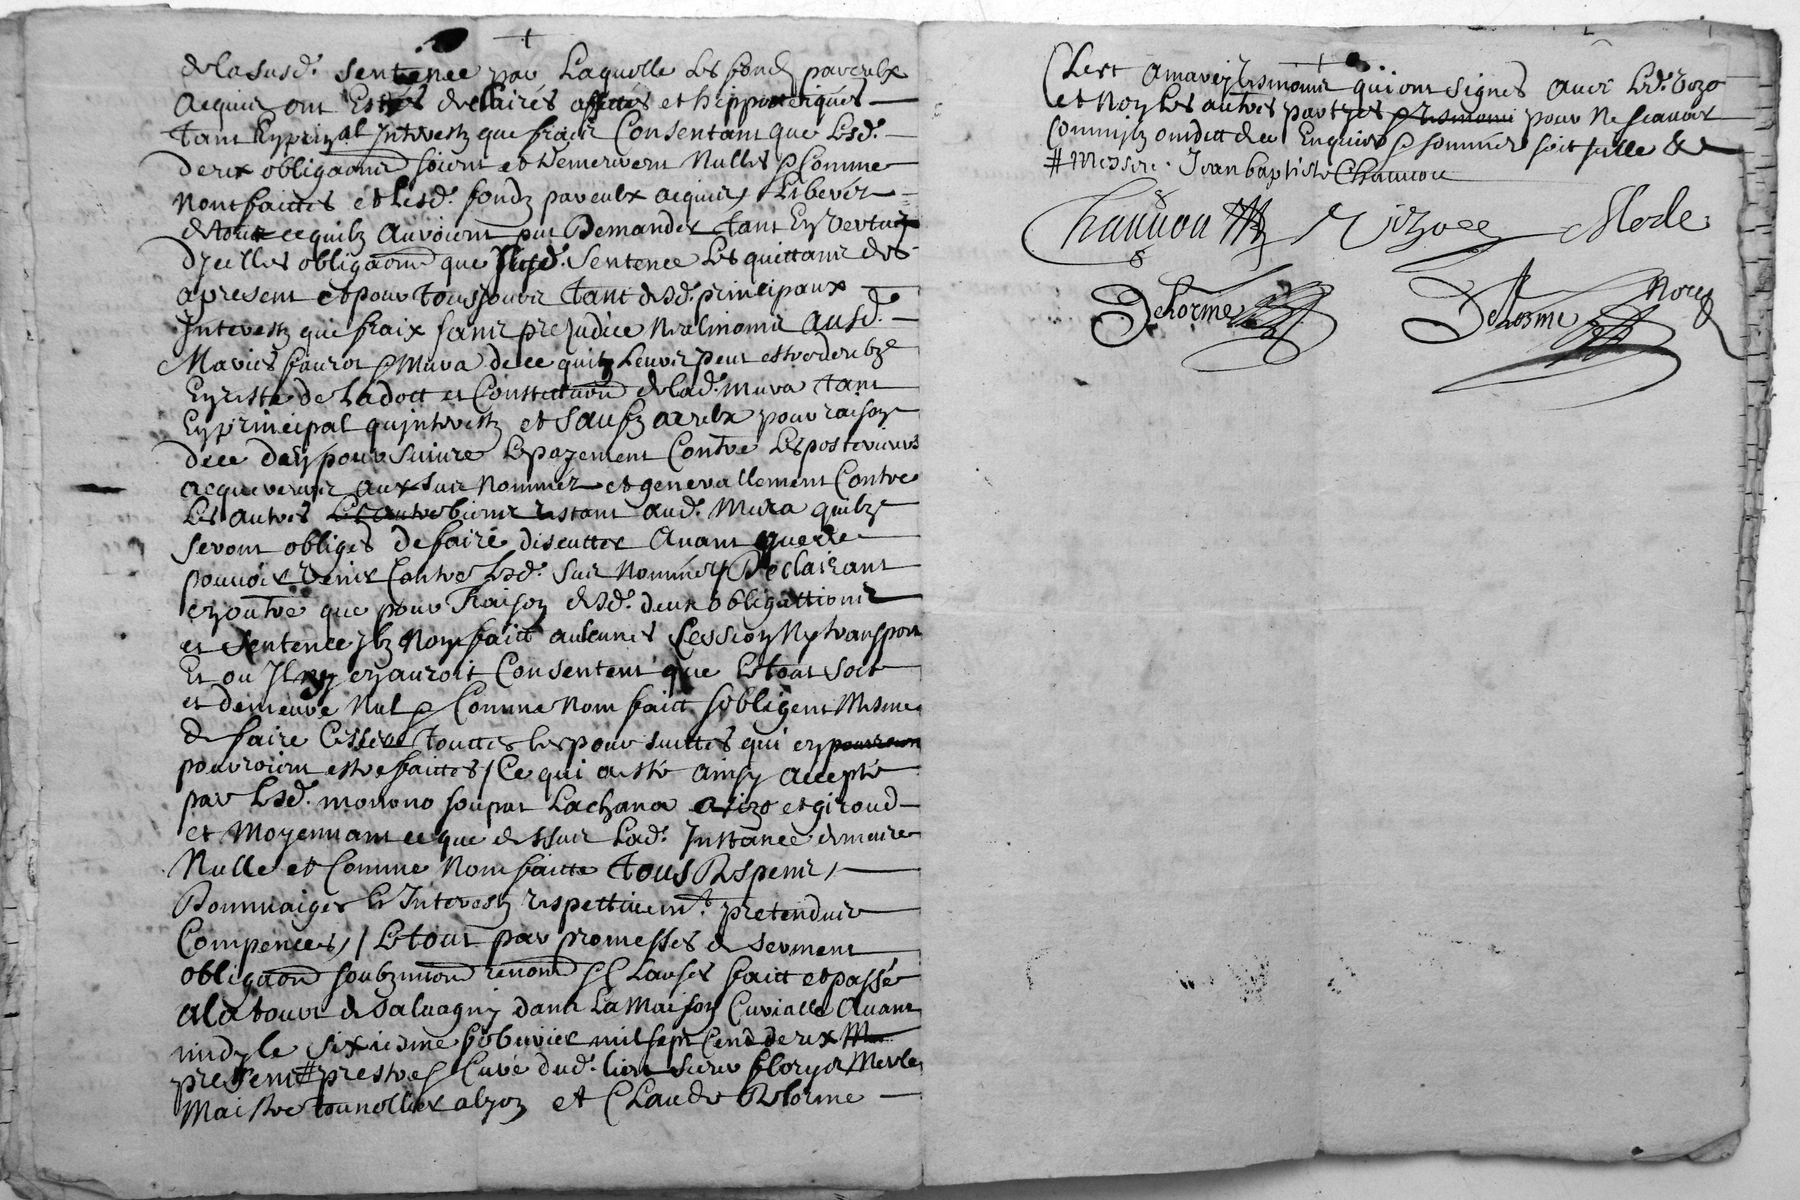 de la susd. sentence par laquelle les fondz par eulx
acquis ont Estés declairés affectés et hippotecqués
tant En prin.al Interestz que fraix Consentant que Lesd.
deux obligaons soient et demeurent Nulles & Comme
Non faittes et Lesd. fondz par eulx acquis Liberés
de tout ce quilz auroient peu Demander tant En Vertu
d'Icelles obligaons que Susd. Sentence Les quittant des
a present et pour tousjours tant desd. principaux
Interestz que fraix sans prejudice Neanmoins ausd.
Mariés faurot & Mura de ce quilz Leurs peut estre deub
En reste de La dott et Constitution de lad. Mura tant
En principal qu'Interestz et sauf a eulx pour raison
de ce d'En poursuivre Le payement Contre Les posterieurs
acquereurs aux sus Nommés et generallement Contre
Les autres Les autres biens restant aud. Mura quilz
seront obligés de faire discutter avant que de
pouvoir venir Contre Lesd. sus Nommés Declairant
en outre que pour Raison desd. deux obligattions
et sentence Ilz N'on faict aulcunes Cession Ny transport
Et ou Il ny en auroit Consentent que Le tout soit
et demeure Nul & Comme Non faict s'obligent Mesme
de faire Cesser touttes Les poursuittes qui en pourroient
pourroient estre faittes / Ce qui a esté ainsy accepté
par Lesd. monono soupat Lachana vizo et giroud
et Moyennant ce que dessus Lad. Instance demeure
Nulle et Comme Non faitte tous Despens
Dommaiges & Interestz respettivemt. pretendus
Compencés / Le tout par promesses de serment
obligaon soubzmion renon & Clauses faict et passé
a La tour de Salvagny dans La Maison Curialle avant
midy le sixiesme febvrier mil sept Cend deux
present # prestre & Curé dud. lieu sieur florys Merle
Maistre tounellier a lyon et Claude Delorme
Clerc tesmoins qui ont signés avec Led. vizo
et Non Les autres partyes pour Ne scavoir
Comm'Ilz ont dict de ce Enquis & sommés soit scellé &c
# Messire Jean baptiste Chauvon
Chauvon Vizoce Merle
Delorme Delorme Nore